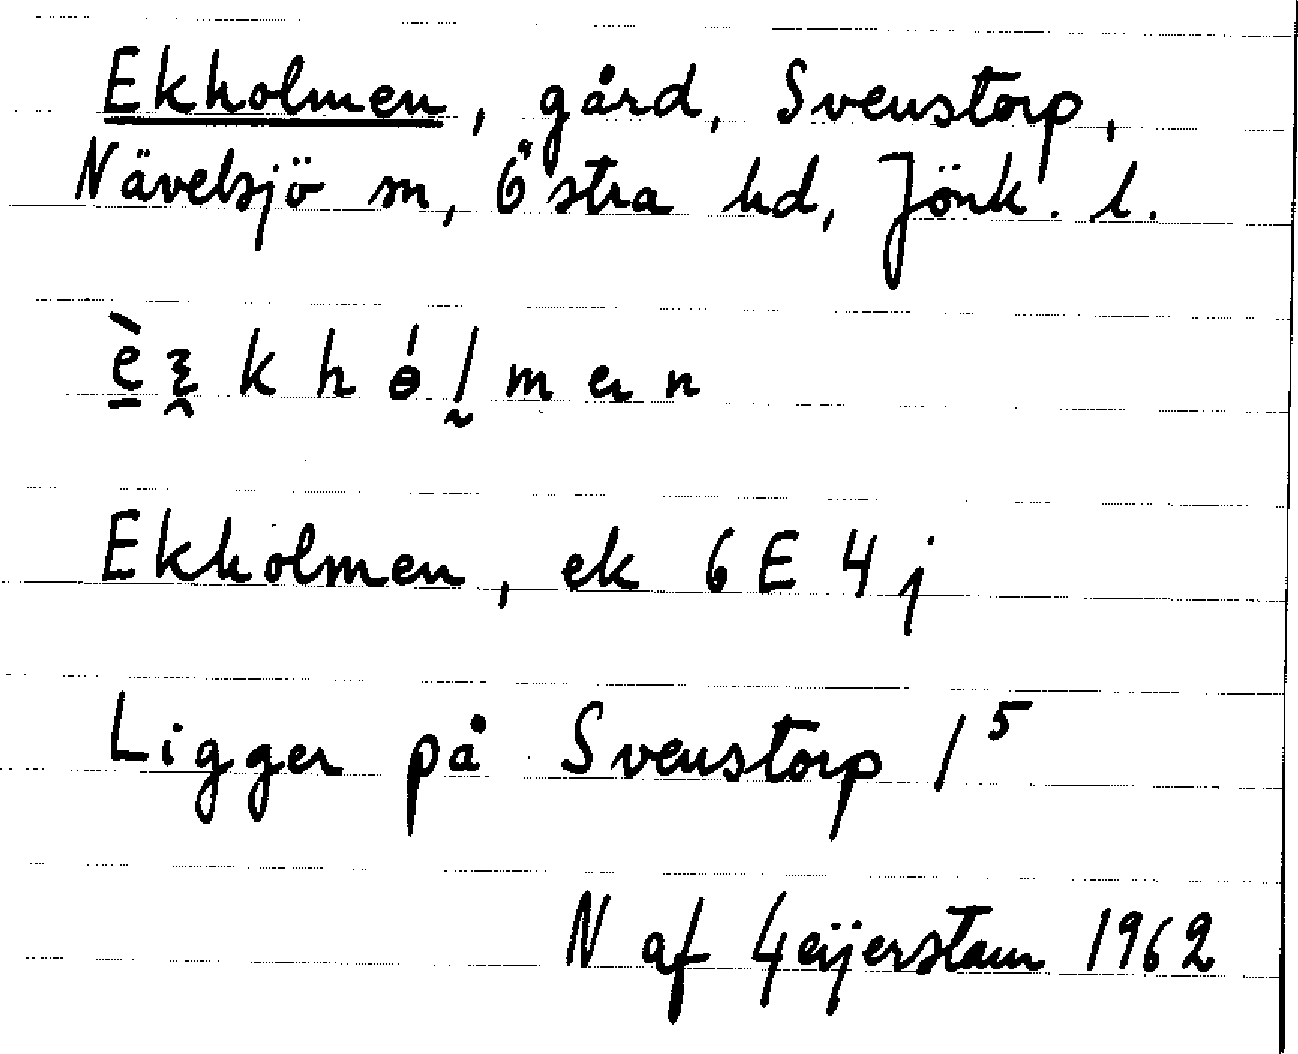 Ekholmen, gård, Svenstorp,
Nävelsjö sn, Östra hd, Jönk. l.
Ekholmen, ek 6E 4j
Ligger på Svenstorp 1⁵
N af Geijerstam 1962